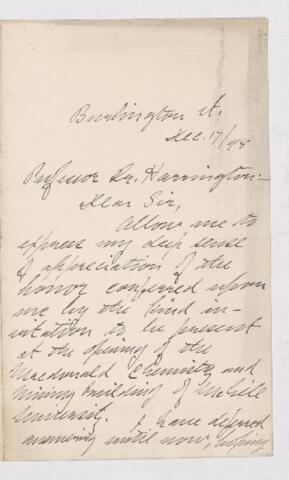 Burlington Vt.
Dec. 17/98
Professor Dr. Harrington:-
Dear Sir,
Allow me to
express my deep sense
of appreciation of the
honor conferred upon
me by the kind in-
vitation to be present
at the opening of the
Macdonald Chemistry and
Mining Building of McGill
University. I have deferred
answering until now, hoping